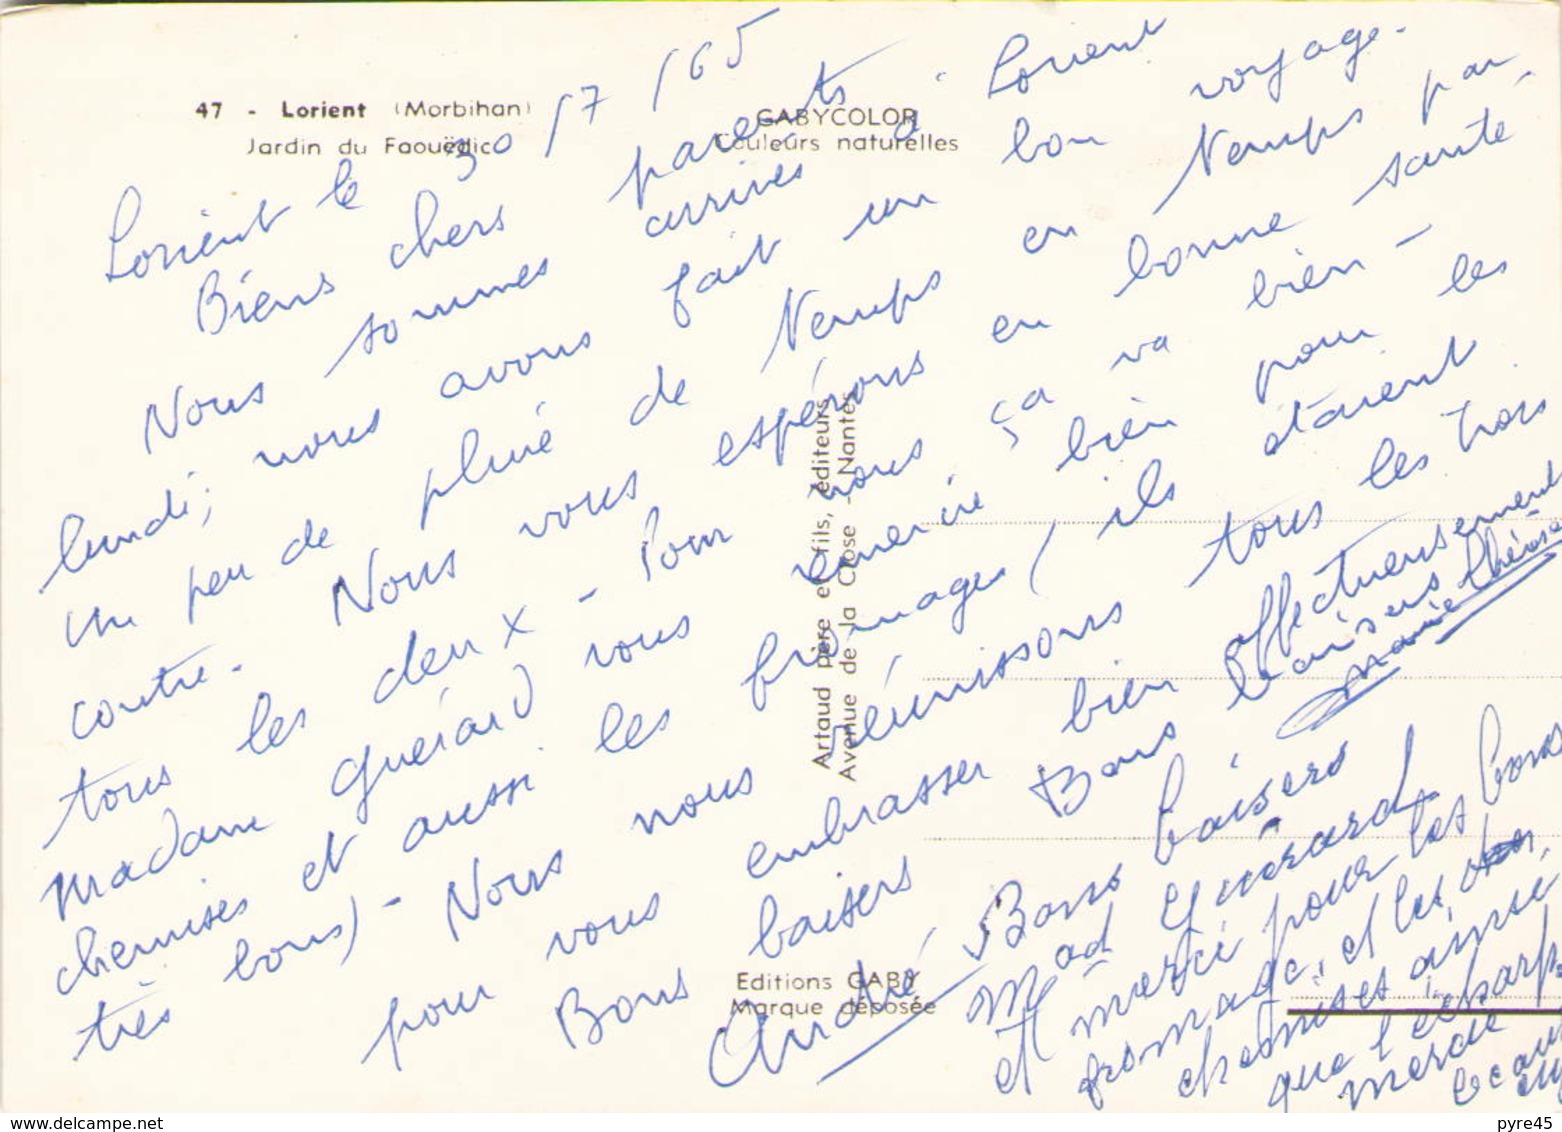 47 - Lorient (Morbihan)
Jardin du Faouëdic
GABYCOLOR
Couleurs naturelles
Lorient le 30/7/65
Biens chers parents
Nous sommes arrivés à Lorient
lundi; nous avons fait un bon voyage.
un peu de pluie de temps en temps par
contre. Nous vous espérons en bonne santé
tous les deux - Pour nous ça va bien -
Madame Guérard vous remercie bien pour les
chemises et aussi les fromages (ils étaient
très bons) - Nous nous réunissons tous les trois
pour vous embrasser bien affectueusement
Bons baisers Bons baisers
André Marie Thérèse
Bons baisers
Mad Guérard
et merci pour les bons
fromage, et les
chemises ainsi
que l'écharpe
merci
Artaud père et fils, éditeurs
Avenue de la Close - Nantes
Editions GABY
Marque déposée
www.delcampe.net
pyre45